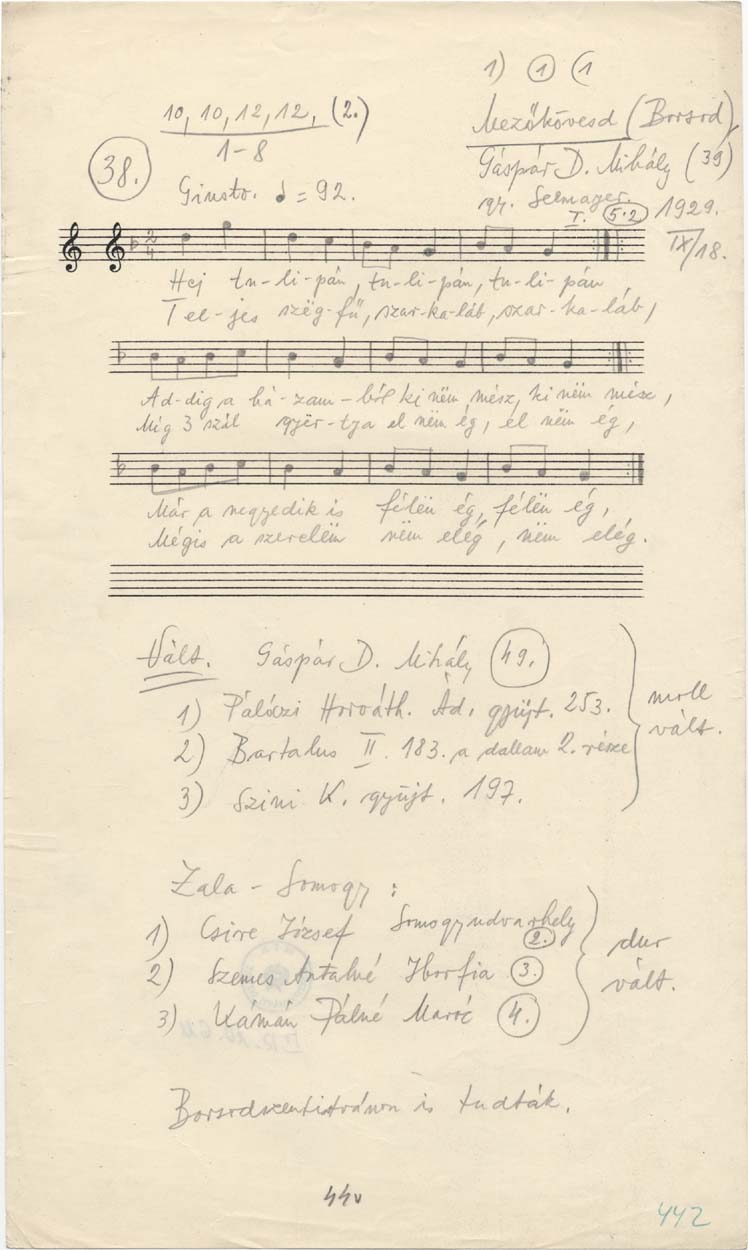 1) ① (1
10, 10, 12, 12, (2.)
1-8
38.
Mezőkövesd (Borsod)
Gáspár D. Mihály (39)
gy. Seemayer.
1929.
IX/18.
Giusto. = 92.
I. 5.2
2 4
Hej tu-li-pán, tu-li-pán, tu-li-pán
Tel-jes szëg-fű, szar-ka-láb, szar-ka-láb,
Ad-dig a há-zam-ból ki nëm mész, ki nëm mész,
Míg 3 szál gyër-tya el nëm ég, el nëm ég,
Már a negyedik is félën ég, félën ég,
Mégis a szerelëm nëm elég, nëm elég.
Vált. Gáspár D. Mihály 49.
1) Pálóczi Horváth. Ád. gyüjt. 253.
2) Bartalus II. 183. a dallam 2. része
3) Szini K. gyüjt. 197.
moll
vált.
Zala - Somogy:
1) Csire József Somogyudvarhely 2.
2) Szemes Antalné Iborfia 3.
3) Kámán Pálné Maróc 4.
dur
vált.
Borsodszentistvánon is tudták.
44v
442